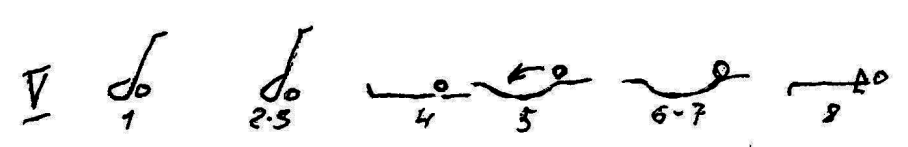 V
1 2-3 4 5 6-7 8